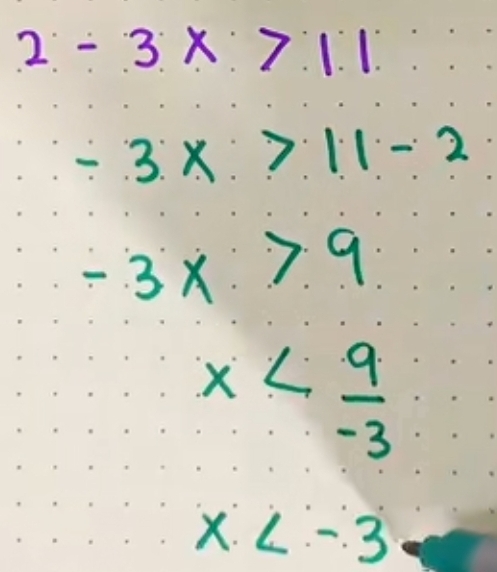 2 - 3x > 11
- 3x > 11 - 2
- 3x > 9
x < 9/-3
x < -3